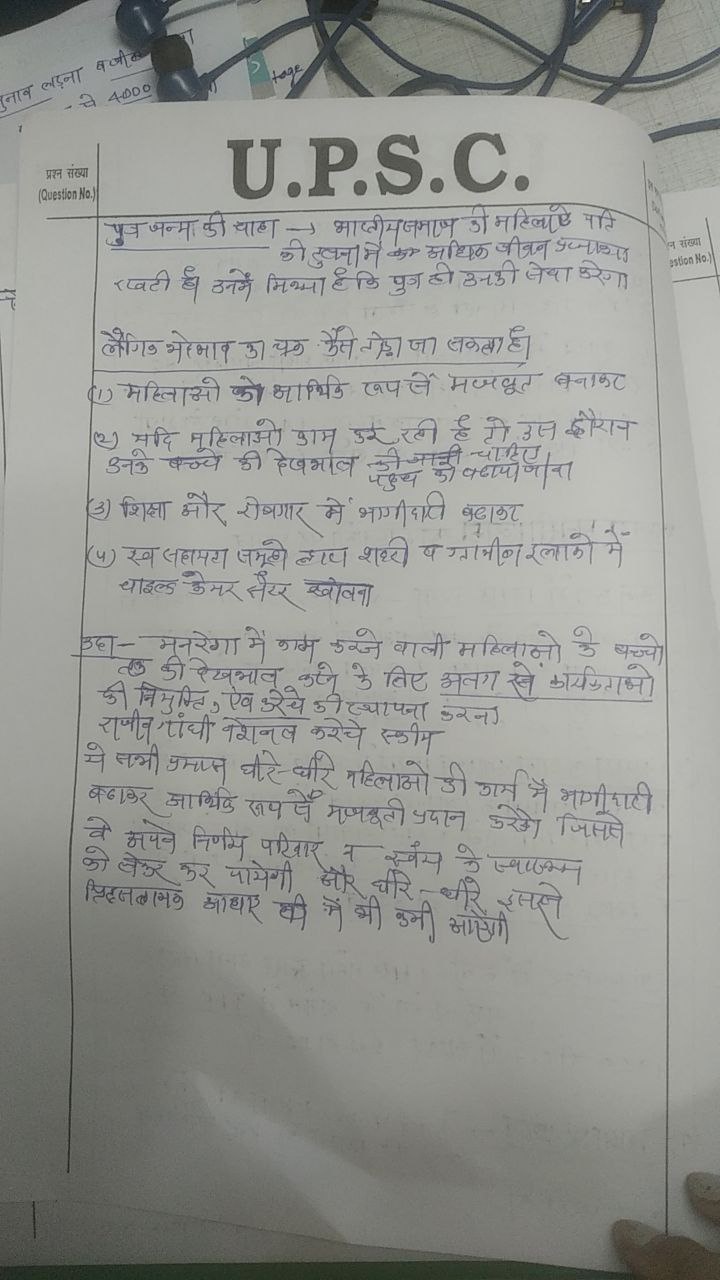 चुनाव लड़ना
से 4000
U.P.S.C.
प्रश्न संख्या
(Question No.)
न संख्या
estion No.)
पुत्र जन्म की चाह → भारतीय समाज की महिलाएं पति
की तुलना में अधिक जीवन प्रत्याशा
रखती है। उनमें मिथ्या है कि पुत्र ही उनकी सेवा करेगा
लैंगिक भेदभाव का चक्र कैसे तोड़ा जा सकता है।
(1) महिलाओं को आर्थिक रूप से मजबूत बनाकर
(2) यदि महिलाओं काम कर रही है तो उस दौरान
उनके बच्चे की देखभाल की जानी चाहिए
को बढाया जाना
(3) शिक्षा और रोजगार में भागीदारी बढाकर
(4) स्व सहायता समूहो द्वारा शहरी व ग्रामीण इलाको में
चाइल्ड केयर सेंटर खोलना
उदा - मनरेगा में काम करने वाली महिलाओ के बच्चो
की देखभाल करने के लिए अलग से कार्यकताओ
की नियुक्ति, एंव करेचे की स्थापना करना
राजीव गांधी नेशनल करेचे स्कीम
ये सभी प्रयास धीरे-धीरे महिलाओं की कार्य में भागीदारी
बढाकर आर्थिक रूप से मजबूती प्रदान करेगे जिससे
वे अपने निर्णय परिवार व स्वंय के स्वास्थ्य
को लेकर कर पायेगी और धीरे-धीरे इससे
पितृसतात्मक आधार में भी कमी आएगी